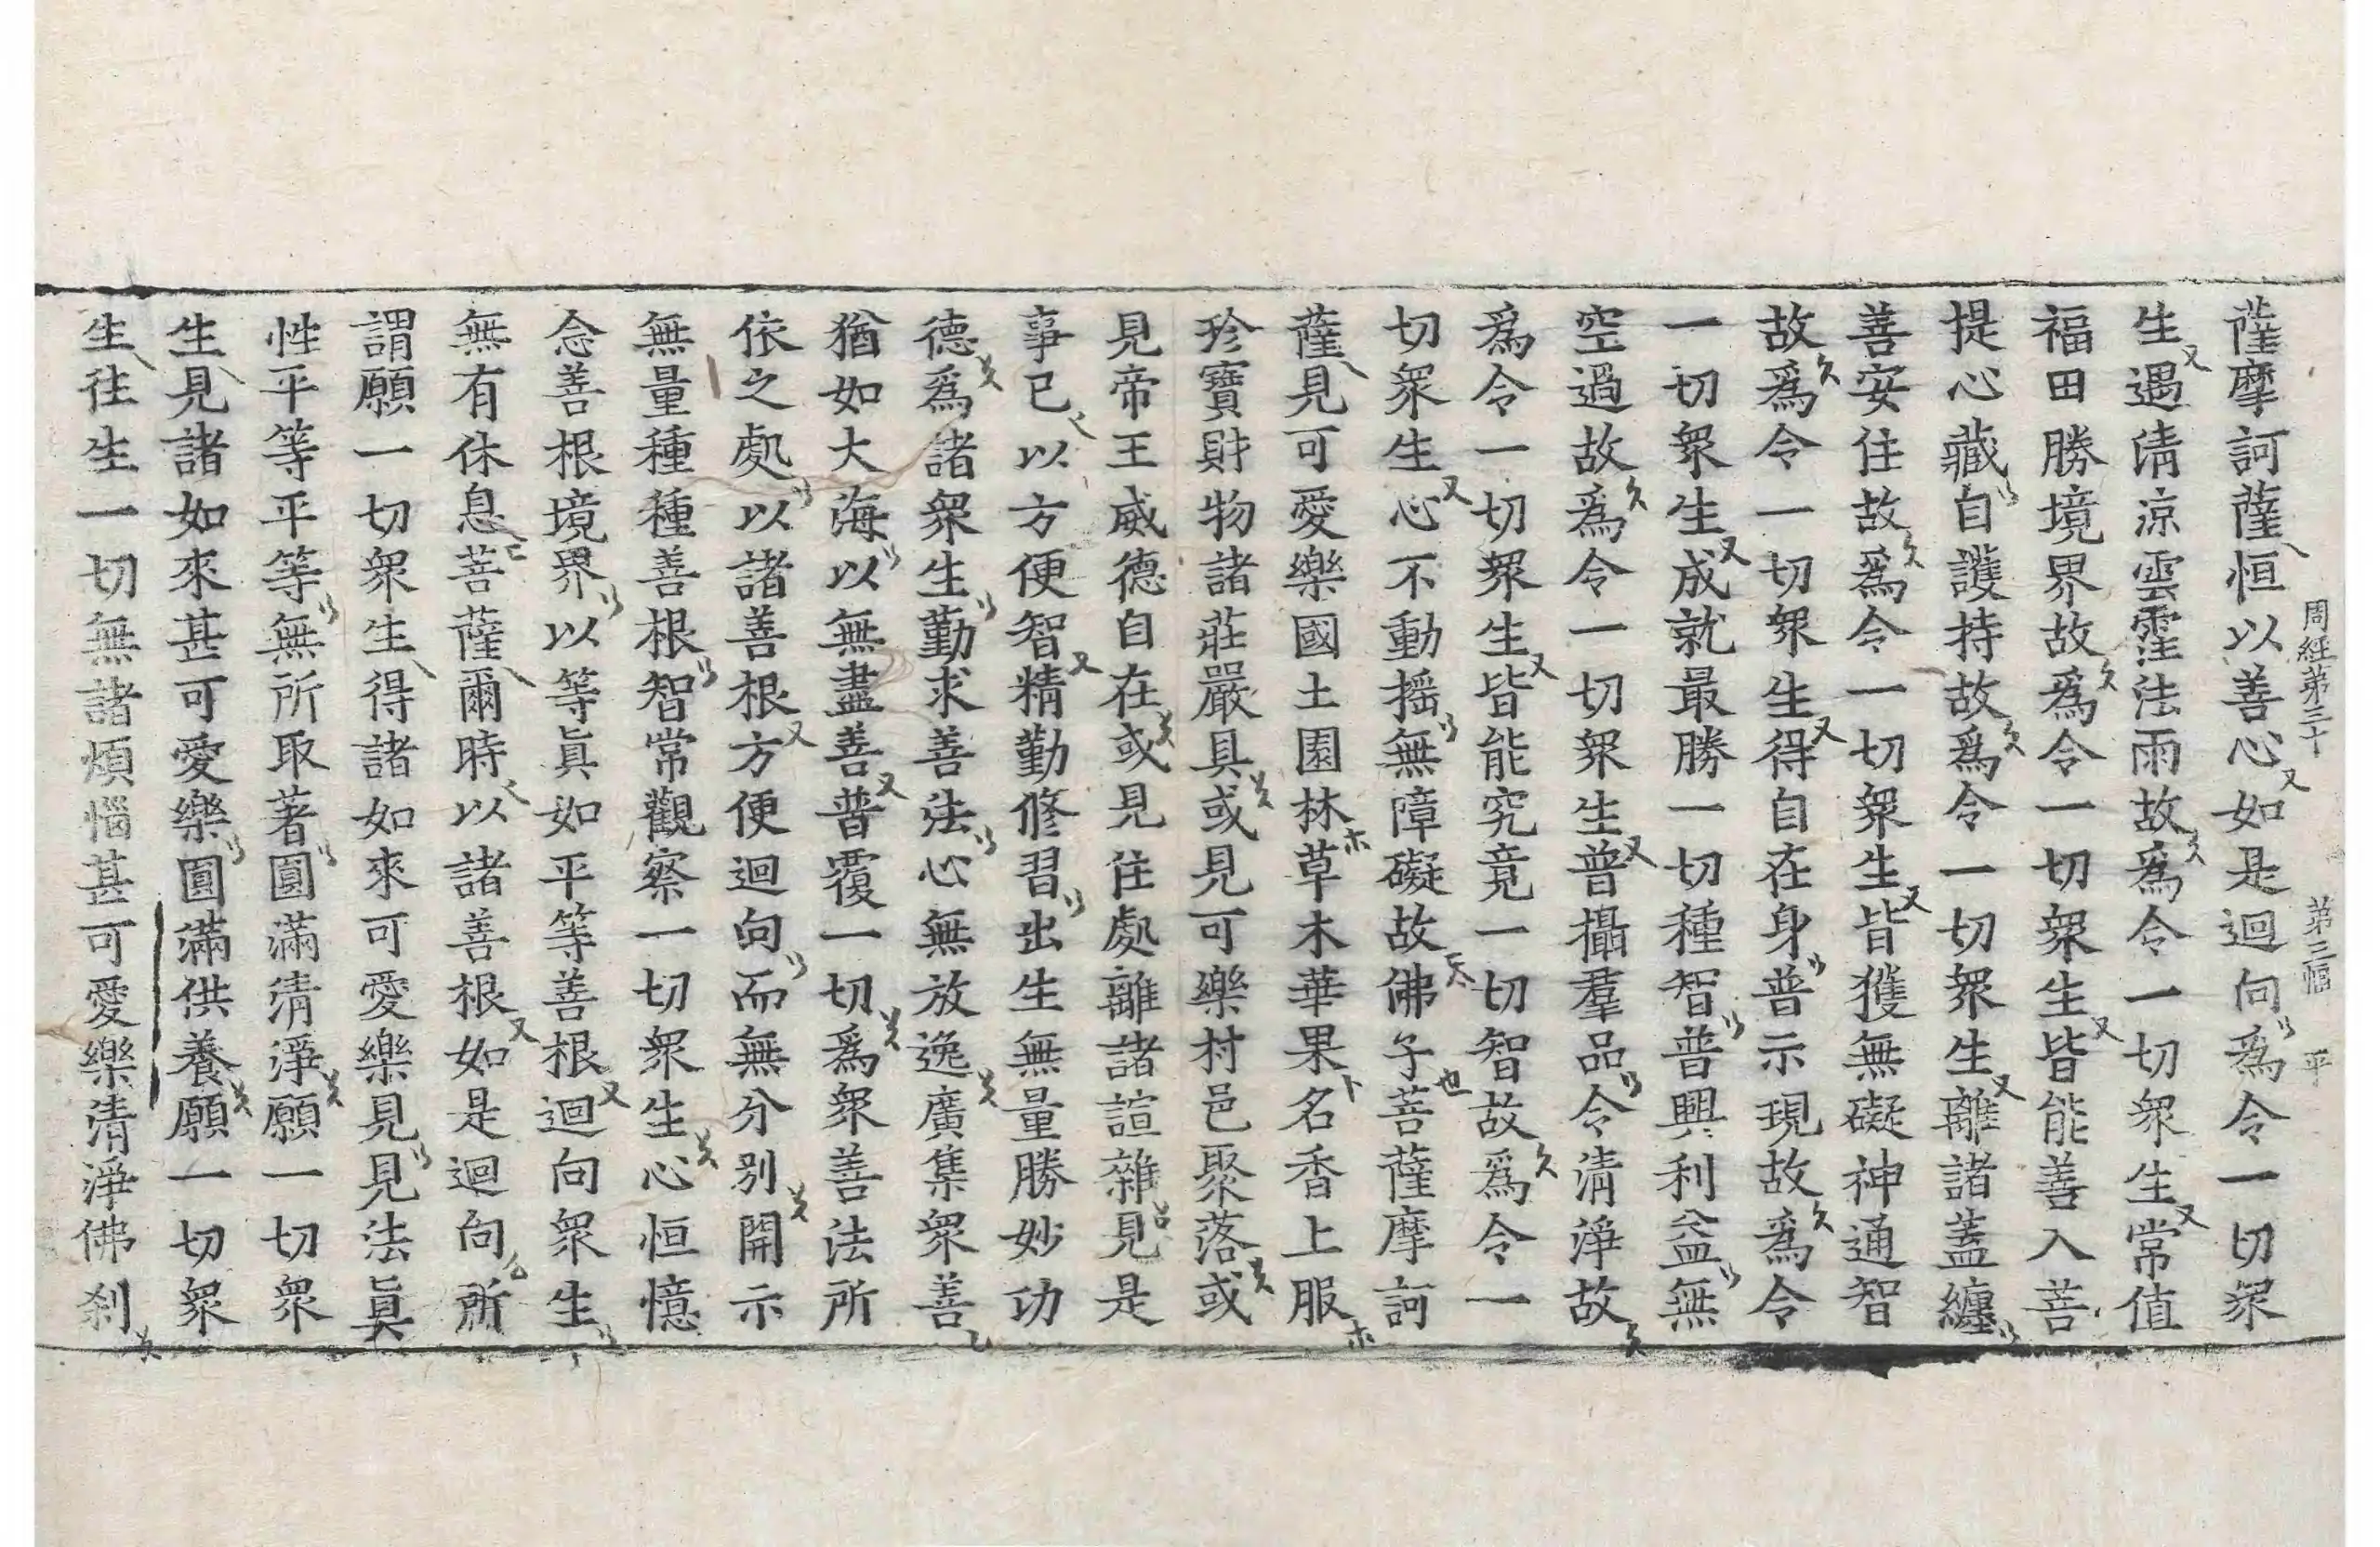 周經第三十 第三幅 平
薩摩訶薩恒以善心如是迴向爲令一切衆
生遇清涼雲霔法雨故爲令一切衆生常值
福田勝境界故爲令一切衆生皆能善入菩
提心藏自護持故爲令一切衆生離諸蓋纏
善安住故爲令一切衆生皆獲無礙神通智
故爲令一切衆生得自在身普示現故爲令
一切衆生成就最勝一切種智普興利益無
空過故爲令一切衆生普攝羣品令清淨故
爲令一切衆生皆能究竟一切智故爲令一
切衆生心不動搖無障礙故佛子菩薩摩訶
薩見可愛樂國土園林草木華果名香上服
珍寶財物諸莊嚴具或見可樂村邑聚落或
見帝王威德自在或見住處離諠雜見是
事已以方便智精勤修習出生無量勝妙功
德爲諸衆生勤求善法心無放逸廣集衆善
猶如大海以無盡善普覆一切爲衆善法所
依之處以諸善根方便迴向而無分别開示
無量種種善根智常觀察一切衆生心恒憶
念善根境界以等眞如平等善根迴向衆生
無有休息菩薩爾時以諸善根如是迴向所
謂願一切衆生得諸如來可愛樂見見法眞
性平等平等無所取著圓滿清淨願一切衆
生見諸如來甚可愛樂圓滿供養願一切衆
生往生一切無諸煩惱甚可愛樂清淨佛刹